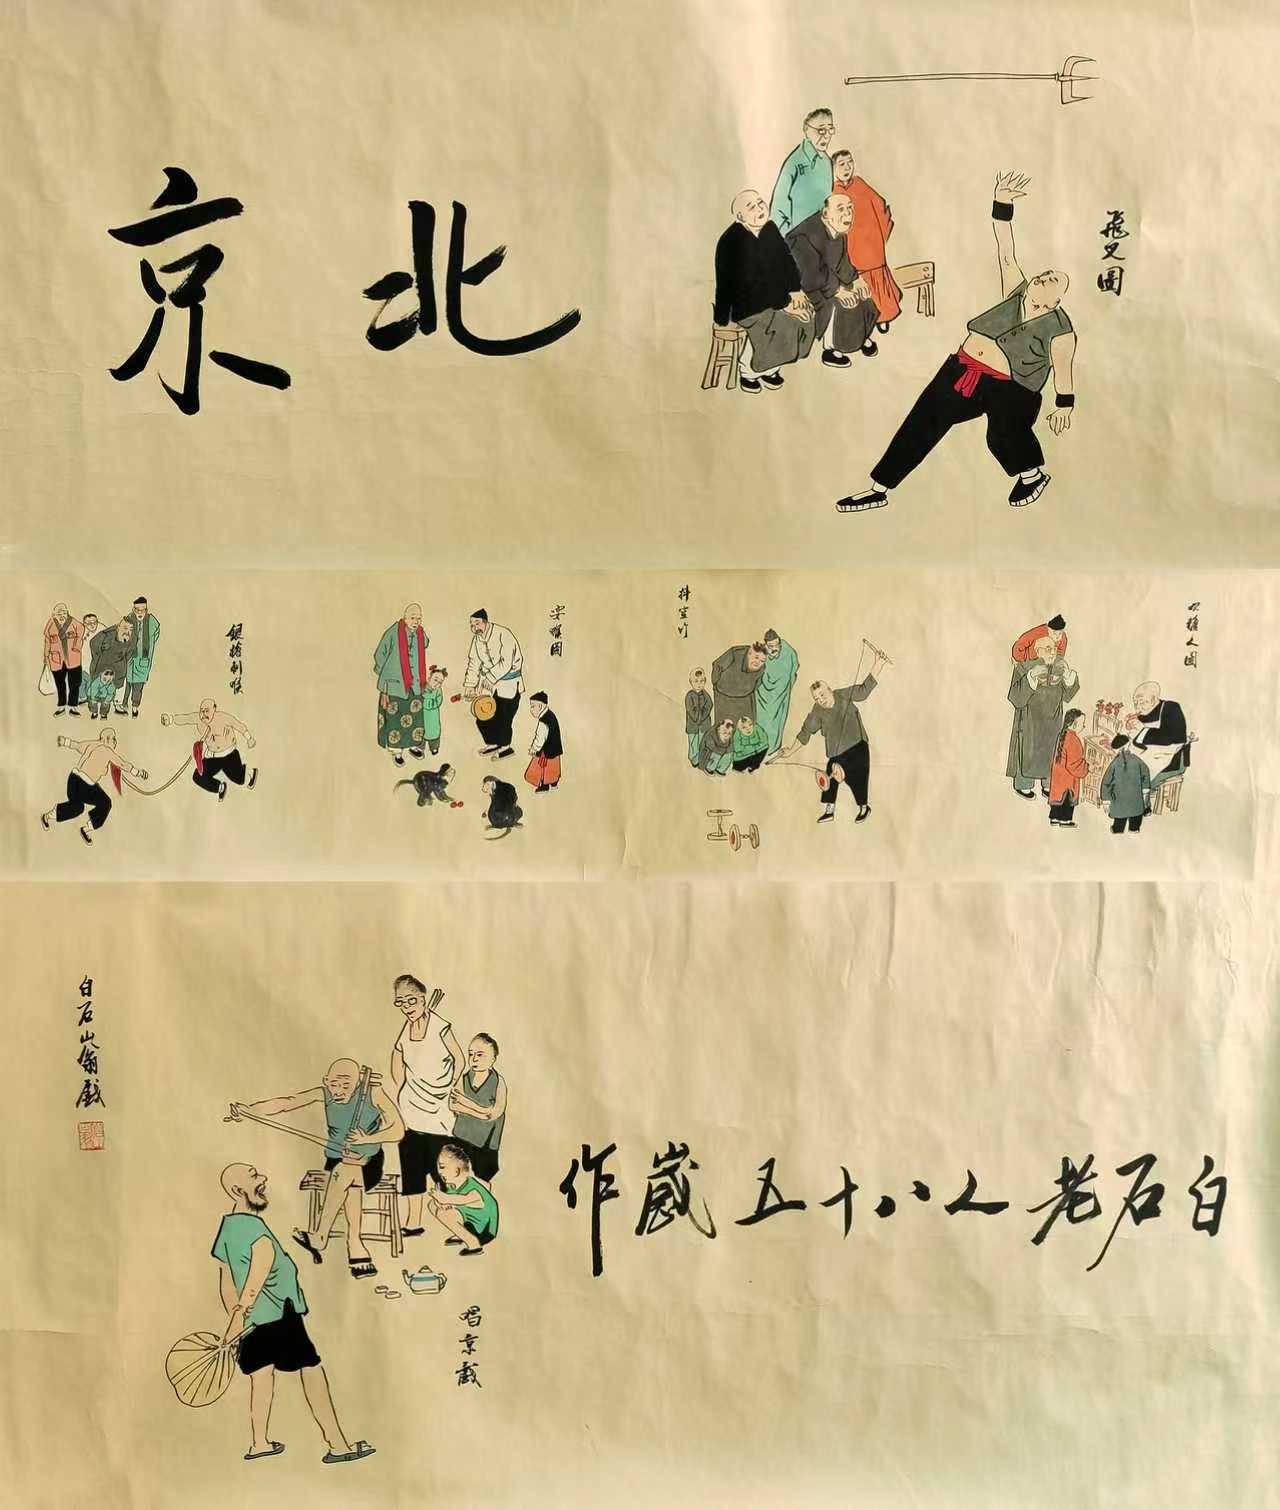 北京
飛叉圖
銀槍刺喉
耍猴圖
抖空竹
吹糖人圖
白石老人八十五歲作
唱京戲
白石山翁戲